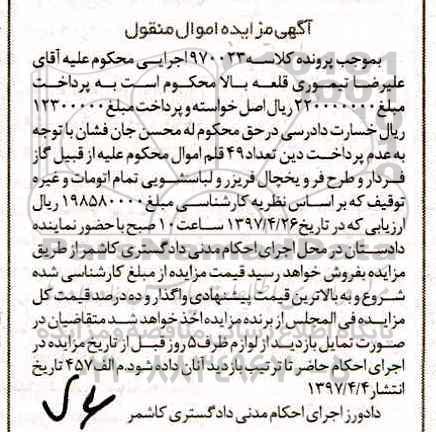 آگهی مزایده اموال منقول
بموجب پرونده کلاسه ۹۷۰۰۲۳ اجرایی محکوم علیه آقای
علیرضا تیموری قلعه بالا محکوم است به پرداخت
مبلغ ۲۲۰۰۰۰۰۰۰ ریال اصل خواسته و پرداخت مبلغ ۱۲۳۰۰۰۰۰
ریال خسارت دادرسی در حق محکوم له محسن جان فشان با توجه
به عدم پرداخت دین تعداد ۴۹ قلم اموال محکوم علیه از قبیل گاز
فردار و طرح فر و یخچال فریزر و لباسشویی تمام اتومات و غیره
توقیف که بر اساس نظریه کارشناسی مبلغ ۱۹۸۵۸۰۰۰۰ ریال
ارزیابی که در تاریخ ۱۳۹۷/۴/۲۶ ساعت ۱۰ صبح با حضور نماینده
دادستان در محل اجرای احکام مدنی دادگستری کاشمر از طریق
مزایده بفروش خواهد رسید قیمت مزایده از مبلغ کارشناسی شده
شروع و به بالاترین قیمت پیشنهادی واگذار و ده درصد قیمت کل
مزایده فی المجلس از برنده مزایده اخذ خواهد شد متقاضیان در
صورت تمایل بازدید از لوازم ظرف ۵ روز قبل از تاریخ مزایده در
اجرای احکام حاضر تا ترتیب بازدید آنان داده شود. م الف ۴۵۷ تاریخ
انتشار ۱۳۹۷/۴/۴
دادورز اجرای احکام مدنی دادگستری کاشمر